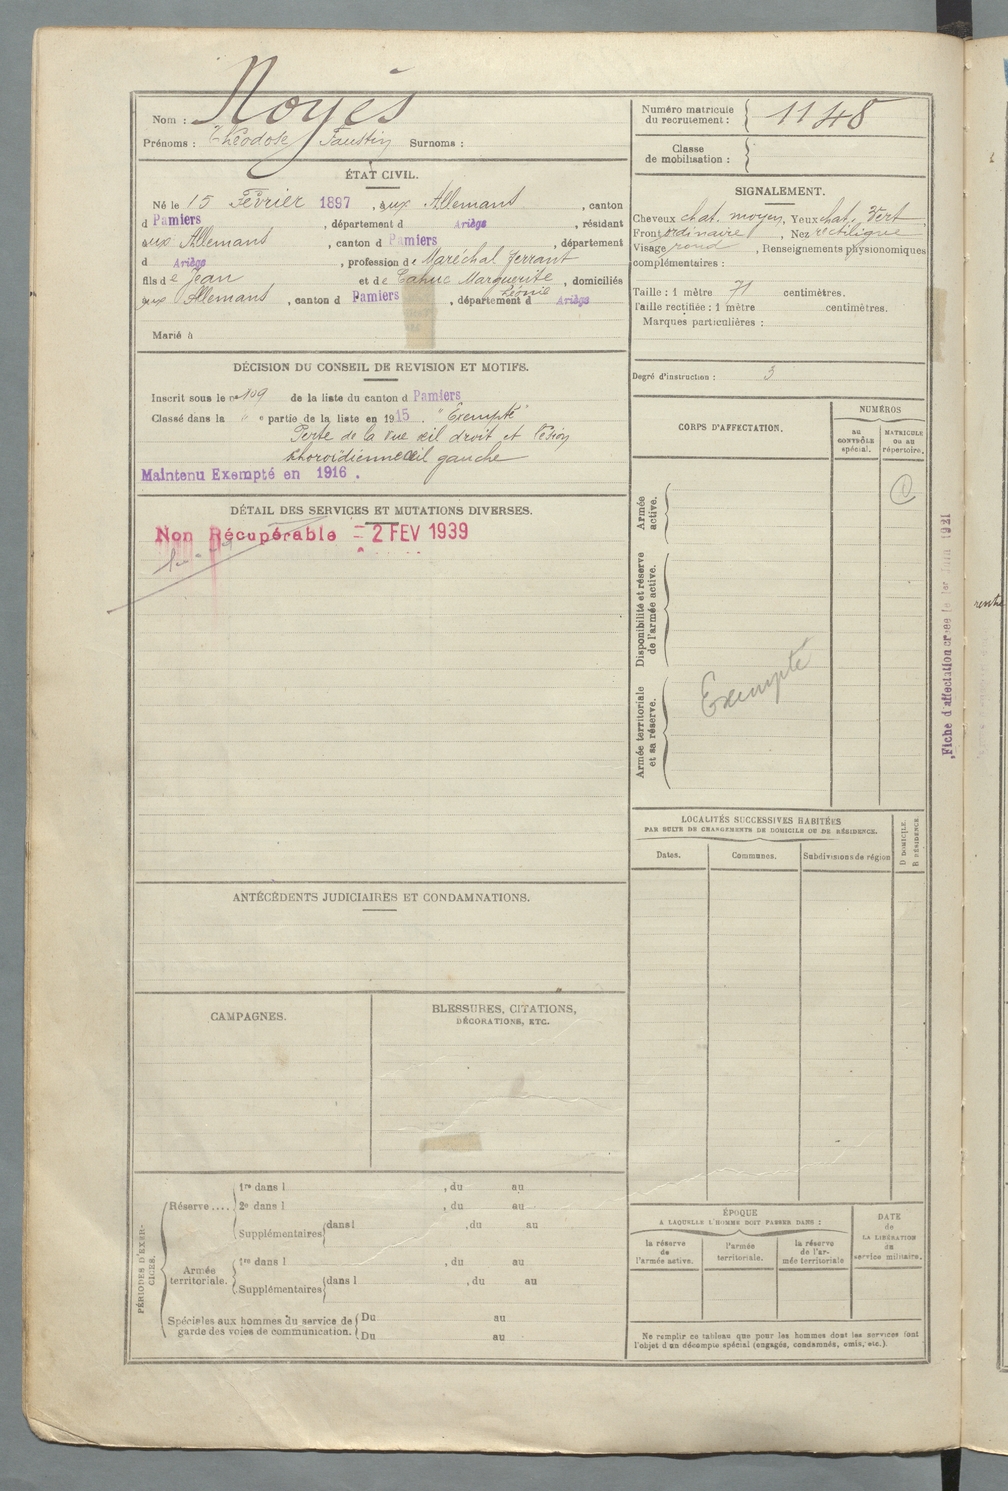 Nom : Noyès
Prénoms : Théodose Faustin Surnoms :
ÉTAT CIVIL.
Né le 15 Février 1897, aux Allemans, canton
d Pamiers, département d Ariège, résident
aux Allemans, canton d Pamiers, département
d Ariège, profession de Maréchal ferrant
fils de Jean et de Cahuc Marguerite Léonie, domiciliés
aux Allemans, canton d Pamiers, département d Ariège
Marié à
DÉCISION DU CONSEIL DE REVISION ET MOTIFS.
Inscrit sous le n° 109 de la liste du canton d Pamiers
Classé dans la " e partie de la liste en 1915. "Exempté"
Perte de la vue œil droit et lésion
choroïdienne œil gauche
Maintenu Exempté en 1916.
DÉTAIL DES SERVICES ET MUTATIONS DIVERSES.
Non Récupérable = 2 FEV 1939
ANTÉCÉDENTS JUDICIAIRES ET CONDAMNATIONS.
CAMPAGNES.
BLESSURES, CITATIONS,
DÉCORATIONS, ETC.
PÉRIODES D'EXER-
CICES.
Réserve....
1re dans l , du au
2e dans l , du au
Supplémentaires dans l , du au
Armée
territoriale.
1re dans l , du au
Supplémentaires dans l , du au
Spéciales aux hommes du service de
garde des voies de communication.
Du au
Du au
Numéro matricule
du recrutement : 1148
Classe
de mobilisation :
SIGNALEMENT.
Cheveux chat. moyen, Yeux chat. Vert
Front ordinaire, Nez rectiligne
Visage rond, Renseignements physionomiques
complémentaires :
Taille : 1 mètre 71 centimètres.
Taille rectifiée : 1 mètre centimètres.
Marques particulières :
Degré d'instruction : 3
CORPS D'AFFECTATION.
NUMÉROS
au
CONTRÔLE
spécial.
MATRICULE
ou au
répertoire.
Armée
active.
Disponibilité et réserve
de l'armée active.
Armée territoriale
et sa réserve.
Exempté
LOCALITÉS SUCCESSIVES HABITÉES
PAR SUITE DE CHANGEMENTS DE DOMICILE OU DE RÉSIDENCE.
Dates.
Communes.
Subdivisions de région
D DOMICILE.
R RÉSIDENCE.
ÉPOQUE
A LAQUELLE L'HOMME DOIT PASSER DANS :
la réserve
de
l'armée active.
l'armée
territoriale.
la réserve
de l'ar-
mée territoriale
DATE
de
LA LIBÉRATION
du
service militaire.
Ne remplir ce tableau que pour les hommes dont les services font
l'objet d'un décompte spécial (engagés, condamnés, omis, etc.).
Fiche d'affectation créée le 1er Juin 1921